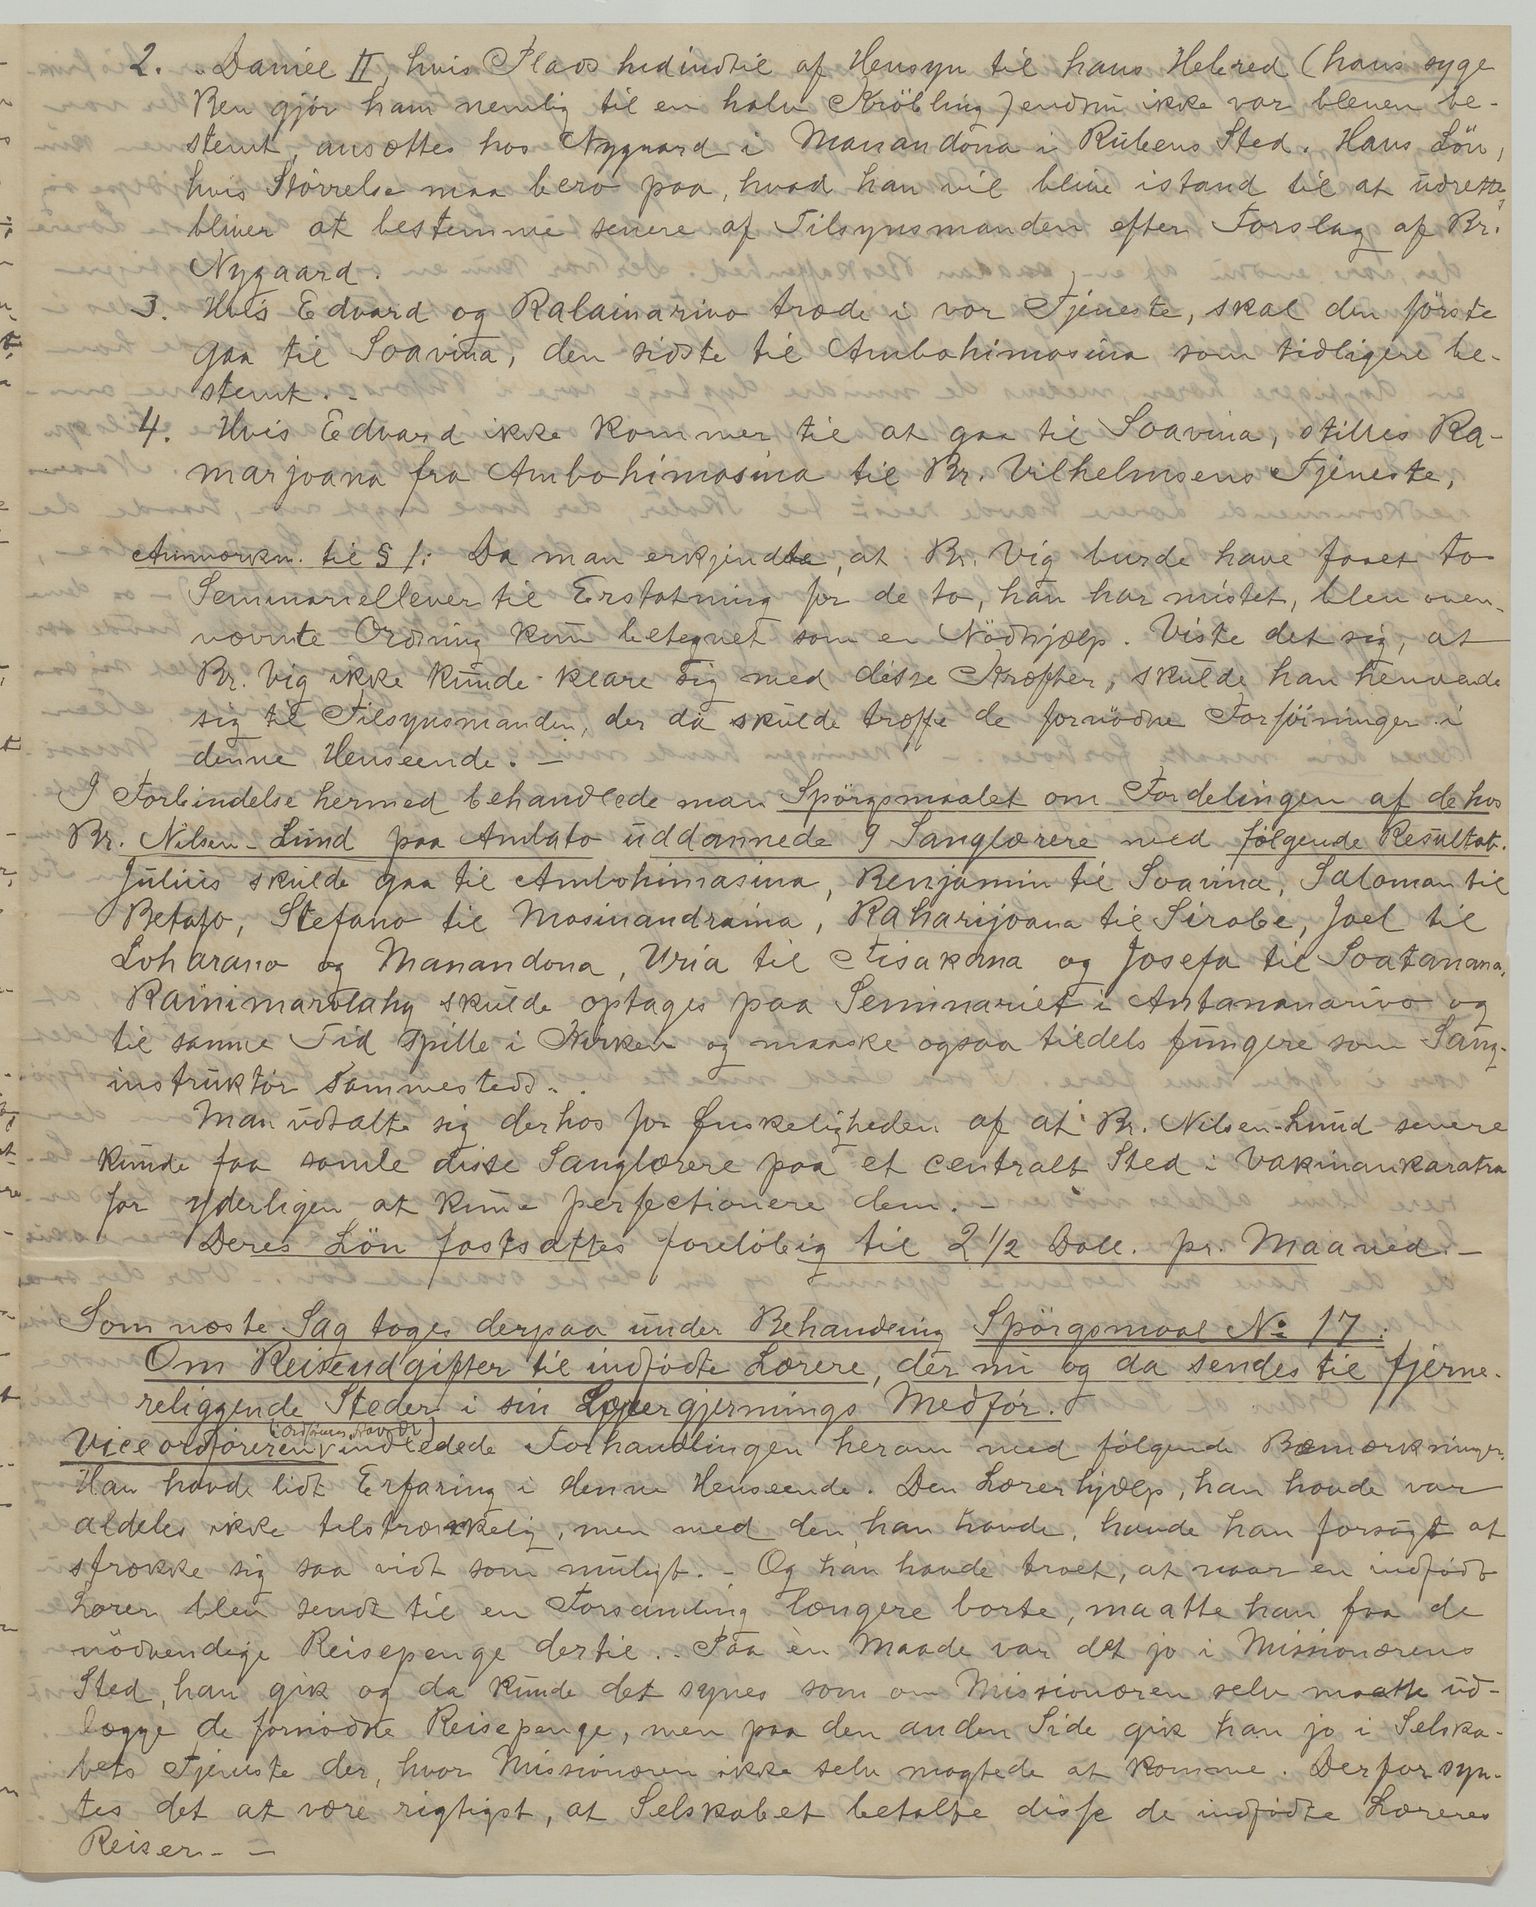 2. Daniel II, hvis Plads hidindtil af Hensyn til hans Helbred (hans syge
Ben gjör ham nemlig til en halv Kröbling) endnu ikke var bleven be-
stemt, ansættes hos Nygaard i Manandona i Rubens Sted. Hans Lön,
hvis Störrelse maa bero paa, hvad han vil blive istand til at udrette,
bliver at bestemme senere af Tilsynsmanden efter Forslag af Br.
Nygaard.
3. Hvis Edvard og Ralainarivo træde i vor Tjeneste, skal den förste
gaa til Soavina, den sidste til Ambohimasina som tidligere be-
stemt. -
4. Hvis Edvard ikke kommer til at gaa til Soavina, stilles Ra-
marjoana fra Ambohimasina til Br. Vilhelmsens Tjeneste.
Anmærkn. til § 1: Da man erkjendte, at Br. Vig burde have faaet to
Seminarielever til Erstatning for de to, han har mistet, blev oven-
nævnte Ordning kun betegnet som en Nödhjælp. Viste det sig, at
Br. Vig ikke kunde klare sig med disse Kræfter, skulde han henvende
sig til Tilsynsmanden, der da skulde træffe de fornödne Forföininger i
denne Henseende. -
I Forbindelse hermed behandlede man Spörgsmaalet om Fordelingen af de hos
Br. Nilsen-Lund paa Ambato uddannede 9 Sanglærere med fölgende Resultat.
Julius skulde gaa til Ambohimasina, Benjamin til Soavina, Saloman til
Betafo, Stefano til Masinandraina, Raharijoana til Sirabe, Joel til
Loharano og Manandona, Uria til Fisakana og Josefa til Soatanana,
Rainimarolahy skulde optages paa Seminariet i Antananarivo og
til samme Tid spille i Kirken og maaske ogsaa tildels fungere som Sang-
instruktör sammesteds. -
Man udtalte sig derhos for Önskeligheden af at Br. Nilsen-Lund senere
kunde faa samle disse Sanglærere paa et centralt Sted i Vakinankaratra
for yderligen at kunne perfectionere dem. -
Deres Lön fastsattes forelöbig til 2 1/2 Doll. pr. Maaned. -
Som næste Sag toges derpaa under Behandling Spörgsmaal No 17:
Om Reiseudgifter til indfödte Lærere, der nu og da sendes til fjerne-
religgende Steder i sin Lærergjernings Medför.
Viceordföreren (Ordförers Stavær) indledede Forhandlingen herom med fölgende Bemærkninger.
Han havde lidt Erfaring i denne Henseende. Den Lærerhjælp, han havde var
aldeles ikke tilstrækkelig, men med den, han havde, havde han forsögt at
strække sig saa vidt som muligt. - Og han havde troet, at naar en indfödt
Lærer blev sendt til en Forsamling længere borte, maatte han faa de
nödvendige Reisepenge dertil. - Paa èn Maade var det jo i Missionærens
Sted, han gik og da kunde det synes som om Missionæren selv maatte ud-
lægge de fornödne Reisepenge, men paa den anden Side gik han jo i Selska-
bets Tjeneste der, hvor Missionæren ikke selv magtede at komme. Derfor syn-
tes det at være rigtigst, at Selskabet betalte disse de indfödte Læreres
Reiser. - -